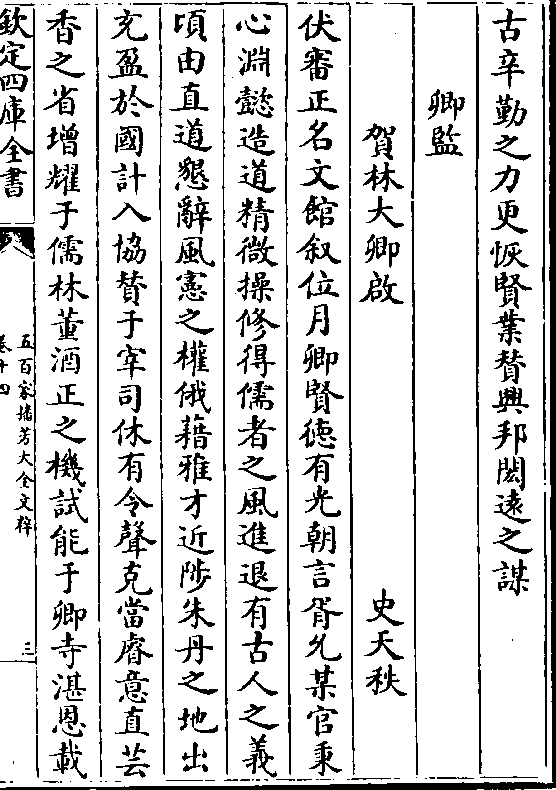 古辛勤之力更恢賢業賛興邦閎遠之謀
卿監
賀林大卿啟
史天秩
伏審正名文館叙位月卿賢徳有光朝言胥允某官秉
心淵懿造道精微操修得儒者之風進退有古人之義
頃由直道懇辭風憲之權俄藉雅才近陟朱丹之地出
充盈於國計入協賛于宰司休有令聲克當睿意直芸
香之省增耀于儒林董酒正之機試能于卿寺湛恩載
欽定四庫全書
五百家播芳大全文粹
卷十四
三